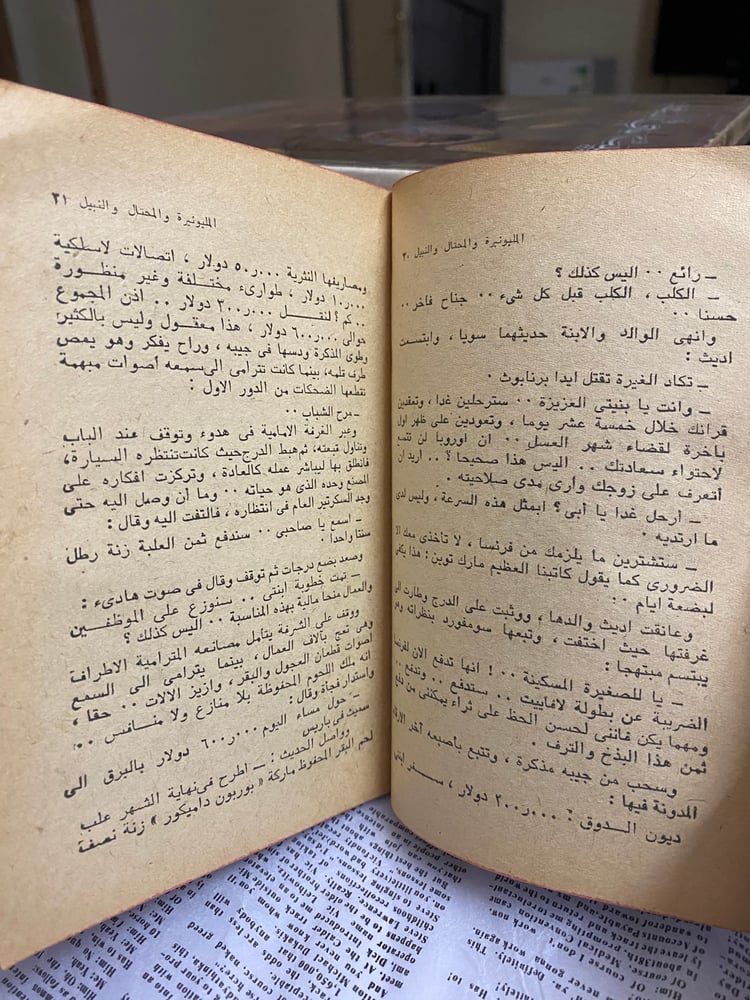 المليونيرة والمحتال والنبيل ٣٠
ـ رائع ٠٠ اليس كذلك ؟
ـ الكلب ، الكلب قبل كل شىء ٠٠ جناح فاخر ٠٠
حسنا ٠٠
وانهى الوالد والابنة حديثهما سويا ، وابتسمت
اديث :
ـ تكاد الغيرة تقتل ايدا برنابوث ٠
ـ وانت يا بنيتى العزيزة ٠٠ سترحلين غدا ، وتعقدين
قرانك خلال خمسة عشر يوما ، وتعودين على ظهر اول
باخرة لقضاء شهر العسل ٠٠ ان اوروبا لن تتسع
لاحتواء سعادتك ٠٠ اليس هذا صحيحا ؟ ٠٠ اريد ان
أتعرف على زوجك وأرى مدى صلاحيته ٠
ـ أرحل غدا يا أبى ؟ ابمثل هذه السرعة ، وليس لدى
ما ارتديه ٠
ـ ستشترين ما يلزمك من فرنسا ، لا تأخذى معك الا
الضرورى كما يقول كاتبنا العظيم مارك توين : هذا يكفى
لبضعة ايام ٠٠
وعانقت اديث والدها ، ووثبت على الدرج وطارت الى
غرفتها حيث اختفت ، وتبعها سومفورد بنظراته وهو
يبتسم مبتهجا :
ـ يا للصغيرة المسكينة ٠٠ ! انها تدفع الان لفرنسا
الضريبة عن بطولة لافاييت ٠٠ ستدفع ٠٠ وندفع ٠٠
ومهما يكن فاننى لحسن الحظ على ثراء يمكننى من دفع
ثمن هذا البذخ والترف ٠
وسحب من جيبه مذكرة ، وتتبع بأصبعه آخر الارقام
المدونة فيها :
ديون الـدوق : ٢٠٠ر٠٠٠ دولار ، سـفر ابنتى
المليونيرة والمحتال والنبيل ٣١
ومصاريفها النثرية ٥٠ر٠٠٠ دولار ، اتصالات لاسلكية
١٠ر٠٠٠ دولار ، طوارىء مختلفة وغير منظـورة
٠٠ كم ؟ لنقـل ٣٠٠ر٠٠٠ دولار ٠٠ اذن المجموع
حوالى ٦٠٠ر٠٠٠ دولار ، هذا معقول وليس بالكثير
وطوى الذكرة ودسها فى جيبه ، وراح يفكر وهو يعض
طرف قلمه، بينما كانت تترامى الى سمعه أصوات مبهمة
تقطعها الضحكات من الدور الاول :
ـ مرح الشباب ٠٠
وعبر الغرفة الامامية فى هدوء وتوقف عند الباب
وتناول قبعته، ثم هبط الدرج حيث كانت تنتظره السيارة،
فانطلق بها ليباشر عمله كالعادة ، وتركزت افكاره على
المصنع وحده الذى هو حياته ٠٠ وما أن وصل اليه حتى
وجد السكرتير العام فى انتظاره ، فالتفت اليه وقال :
ـ اسمع يا صاحبى ٠٠ سندفع ثمن العلبة زنة رطل
سنتا واحدا ٠
وصعد بضع درجات ثم توقف وقال فى صوت هادىء :
ـ تمت خطوبة ابنتى ٠٠ سنوزع على الموظفـين
والعمال منحا مالية بهذه المناسبة ٠٠ اليس كذلك ؟
ووقف على الشرفة يتأمل مصانعه المترامية الاطراف
وهى تعج بآلاف العمال ، بينما يترامى الى السمع
أصوات قطعان العجول والبقر ، وازيز الآلات ٠٠ حقا ،
انه ملك اللحوم المحفوظة بلا منازع ولا منـافس ٠٠
واستدار فجأة وقال :
ـ حول مساء اليوم ٦٠٠ر٠٠٠ دولار بالبرق الى
سميث فى باريس
وواصل الحديث : ـ اطرح فى نهاية الشهر علب
لحم البقر المحفوظ ماركة « بوربون داميكور » زنة نصفة